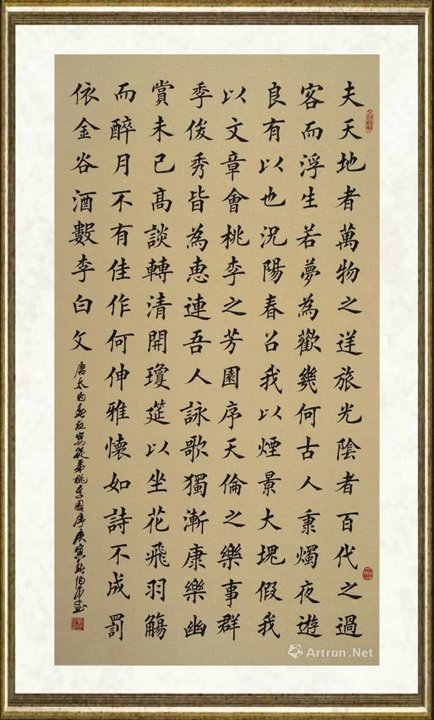 夫天地者萬物之逆旅光陰者百代之過
客而浮生若夢為歡幾何古人秉燭夜遊
良有以也況陽春召我以煙景大塊假我
以文章會桃李之芳園序天倫之樂事群
季俊秀皆為恵連吾人詠歌獨漸康樂幽
賞未已髙談轉清開瓊筵以坐花飛羽觴
而醉月不有佳作何伸雅懷如詩不成罰
依金谷酒數李白文
桃李園序庚寅
Artron.Net